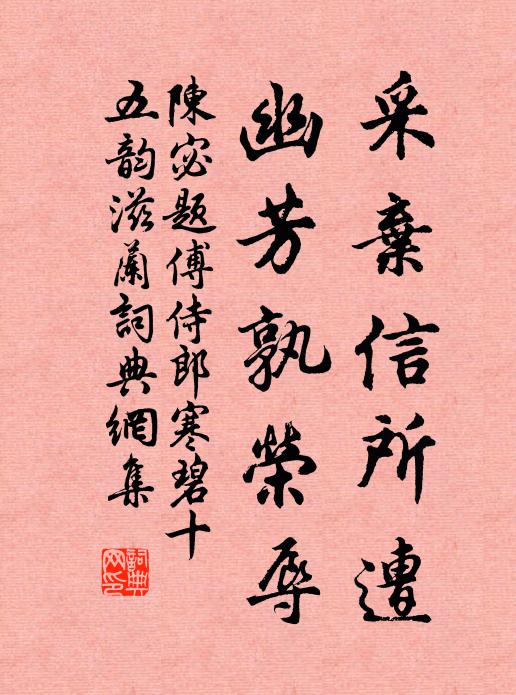 采棄信所遭
幽芳孰榮辱
陳宓題傅侍郎寒碧十
五韵滋蘭詞典網集
詞典
网印